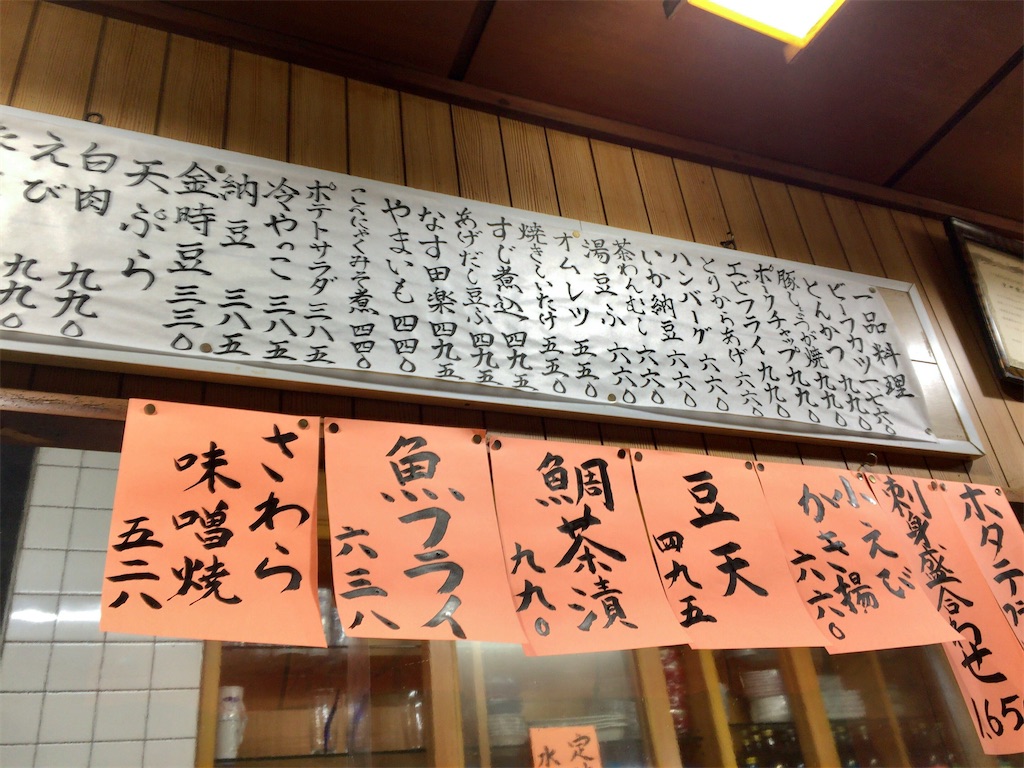 一品料理
ビーフカツ 一七六〇
とんかつ 九九〇
豚しょうが焼 九九〇
ポークチャップ 九九〇
エビフライ 九九〇
とりからあげ 六六〇
ハンバーグ 六六〇
いか納豆 六六〇
茶わんむし 六六〇
湯豆ふ 六六〇
オムレツ 五五〇
焼きしいたけ 五五〇
すじ煮込 四九五
あげだし豆ふ 四九五
なす田楽 四九五
やまいも 四四〇
こんにゃくみそ煮 四四〇
ポテトサラダ 三八五
冷やっこ 三八五
納豆 三八五
金時豆 三三〇
天ぷら
白肉 九九〇
えび 九九〇
ホタテ
刺身盛合わせ
1.65
小えび
かき揚
六六〇
豆天
四九五
鯛茶漬
九九〇
魚フライ
六三八
さわら
味噌焼
五二八
定
水